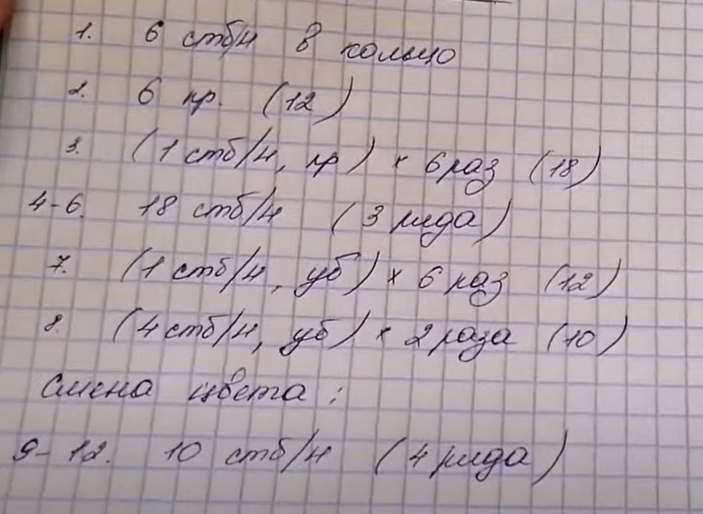 1. 6 стб/н в кольцо
2. 6 пр. (12)
3. (1 стб/н, пр) × 6 раз (18)
4-6. 18 стб/н (3 ряда)
7. (1 стб/н, уб) × 6 раз (12)
8. (4 стб/н, уб) × 2 раза (10)
смена цвета:
9-12. 10 стб/н (4 ряда)